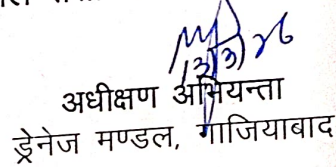 अधीक्षण अभियन्ता
ड्रेनेज मण्डल, गाजियाबाद